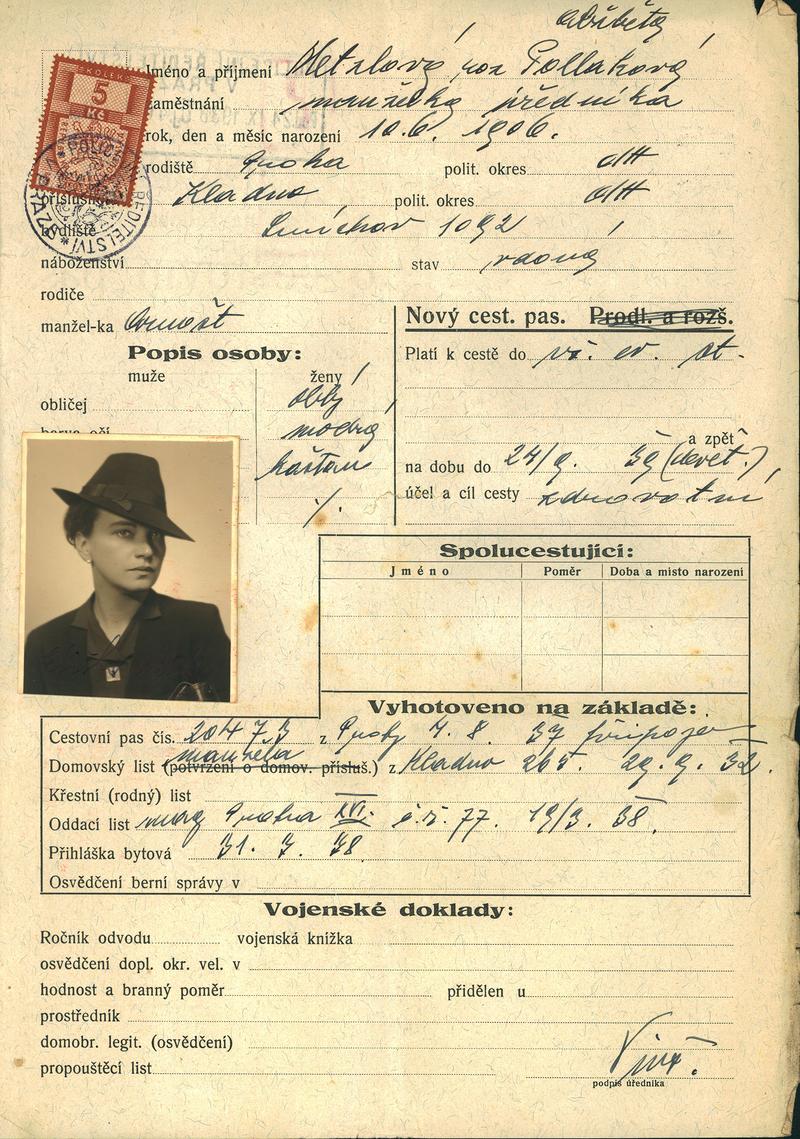 Alžběta
Jméno a příjmení Metzlová, roz Pollaková
zaměstnání manželka úředníka
rok, den a měsíc narození 10.6. 1906.
rodiště Praha polit. okres dtt
Kladno polit. okres dtt
bydliště Smíchov 1092
náboženství stav vdaná
rodiče
manžel-ka Arnošt
Nový cest. pas. Prodl. a rozš.
Popis osoby:
Platí k cestě do vš. ev. st.
muže ženy
obličej oblý
modré
a zpět
kaštan
na dobu do 24/9. 39 (devět.)
účel a cíl cesty zdravotní
./.
Spolucestující:
Jméno Poměr Doba a místo narození
Vyhotoveno na základě:
Cestovní pas čís. 20473 z Prahy 7. 8. 37 připojen
manžela
Domovský list (potvrzení o domov. přísluš.) z Kladno 265. 29. 9. 32.
Křestní (rodný) list
Oddací list mag Praha XVI. č.ř. 77. 19/3. 38.
Přihláška bytová 31. 7. 38.
Osvědčení berní správy v
Vojenské doklady:
Ročník odvodu vojenská knížka
osvědčení dopl. okr. vel. v
hodnost a branný poměr přidělen u
prostředník
domobr. legit. (osvědčení)
propouštěcí list
podpis úředníka
KOLEK
5
Kč
POLIC. ŘEDITELSTVÍ